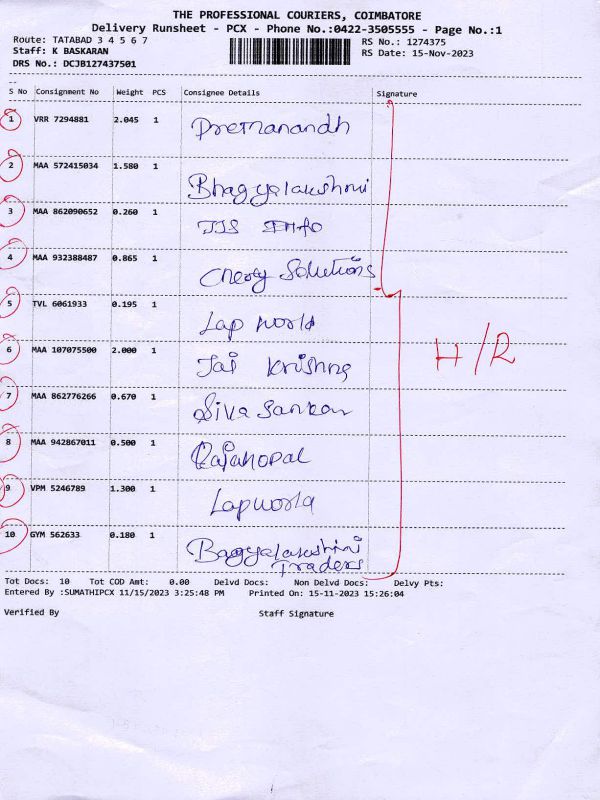 THE PROFESSIONAL COURIERS, COIMBATORE
Delivery Runsheet - PCX - Phone No.:0422-3505555 - Page No.:1
Route: TATABAD 3 4 5 6 7
RS No.: 1274375
Staff: K BASKARAN
RS Date: 15-Nov-2023
DRS No.: DCJB127437501
S No Consignment No Weight PCS Consignee Details Signature
1 VRR 7294881 2.045 1 Premanandh
2 MAA 572415034 1.580 1 Bhagyalakshmi
3 MAA 862090652 0.260 1 Info
4 MAA 932388487 0.865 1 Solutions
5 TVL 6061933 0.195 1 Lap World
6 MAA 107075500 2.000 1 Jai Krishna
7 MAA 862776266 0.670 1 Siva Sankar
8 MAA 942867011 0.500 1
9 VPM 5246789 1.300 1 Lapworld
10 GYM 562633 0.180 1 Bagyalakshmi
Traders
H/R
Tot Docs: 10 Tot COD Amt: 0.00 Delvd Docs: Non Delvd Docs: Delvy Pts:
Entered By :SUMATHIPCX 11/15/2023 3:25:48 PM Printed On: 15-11-2023 15:26:04
Verified By Staff Signature